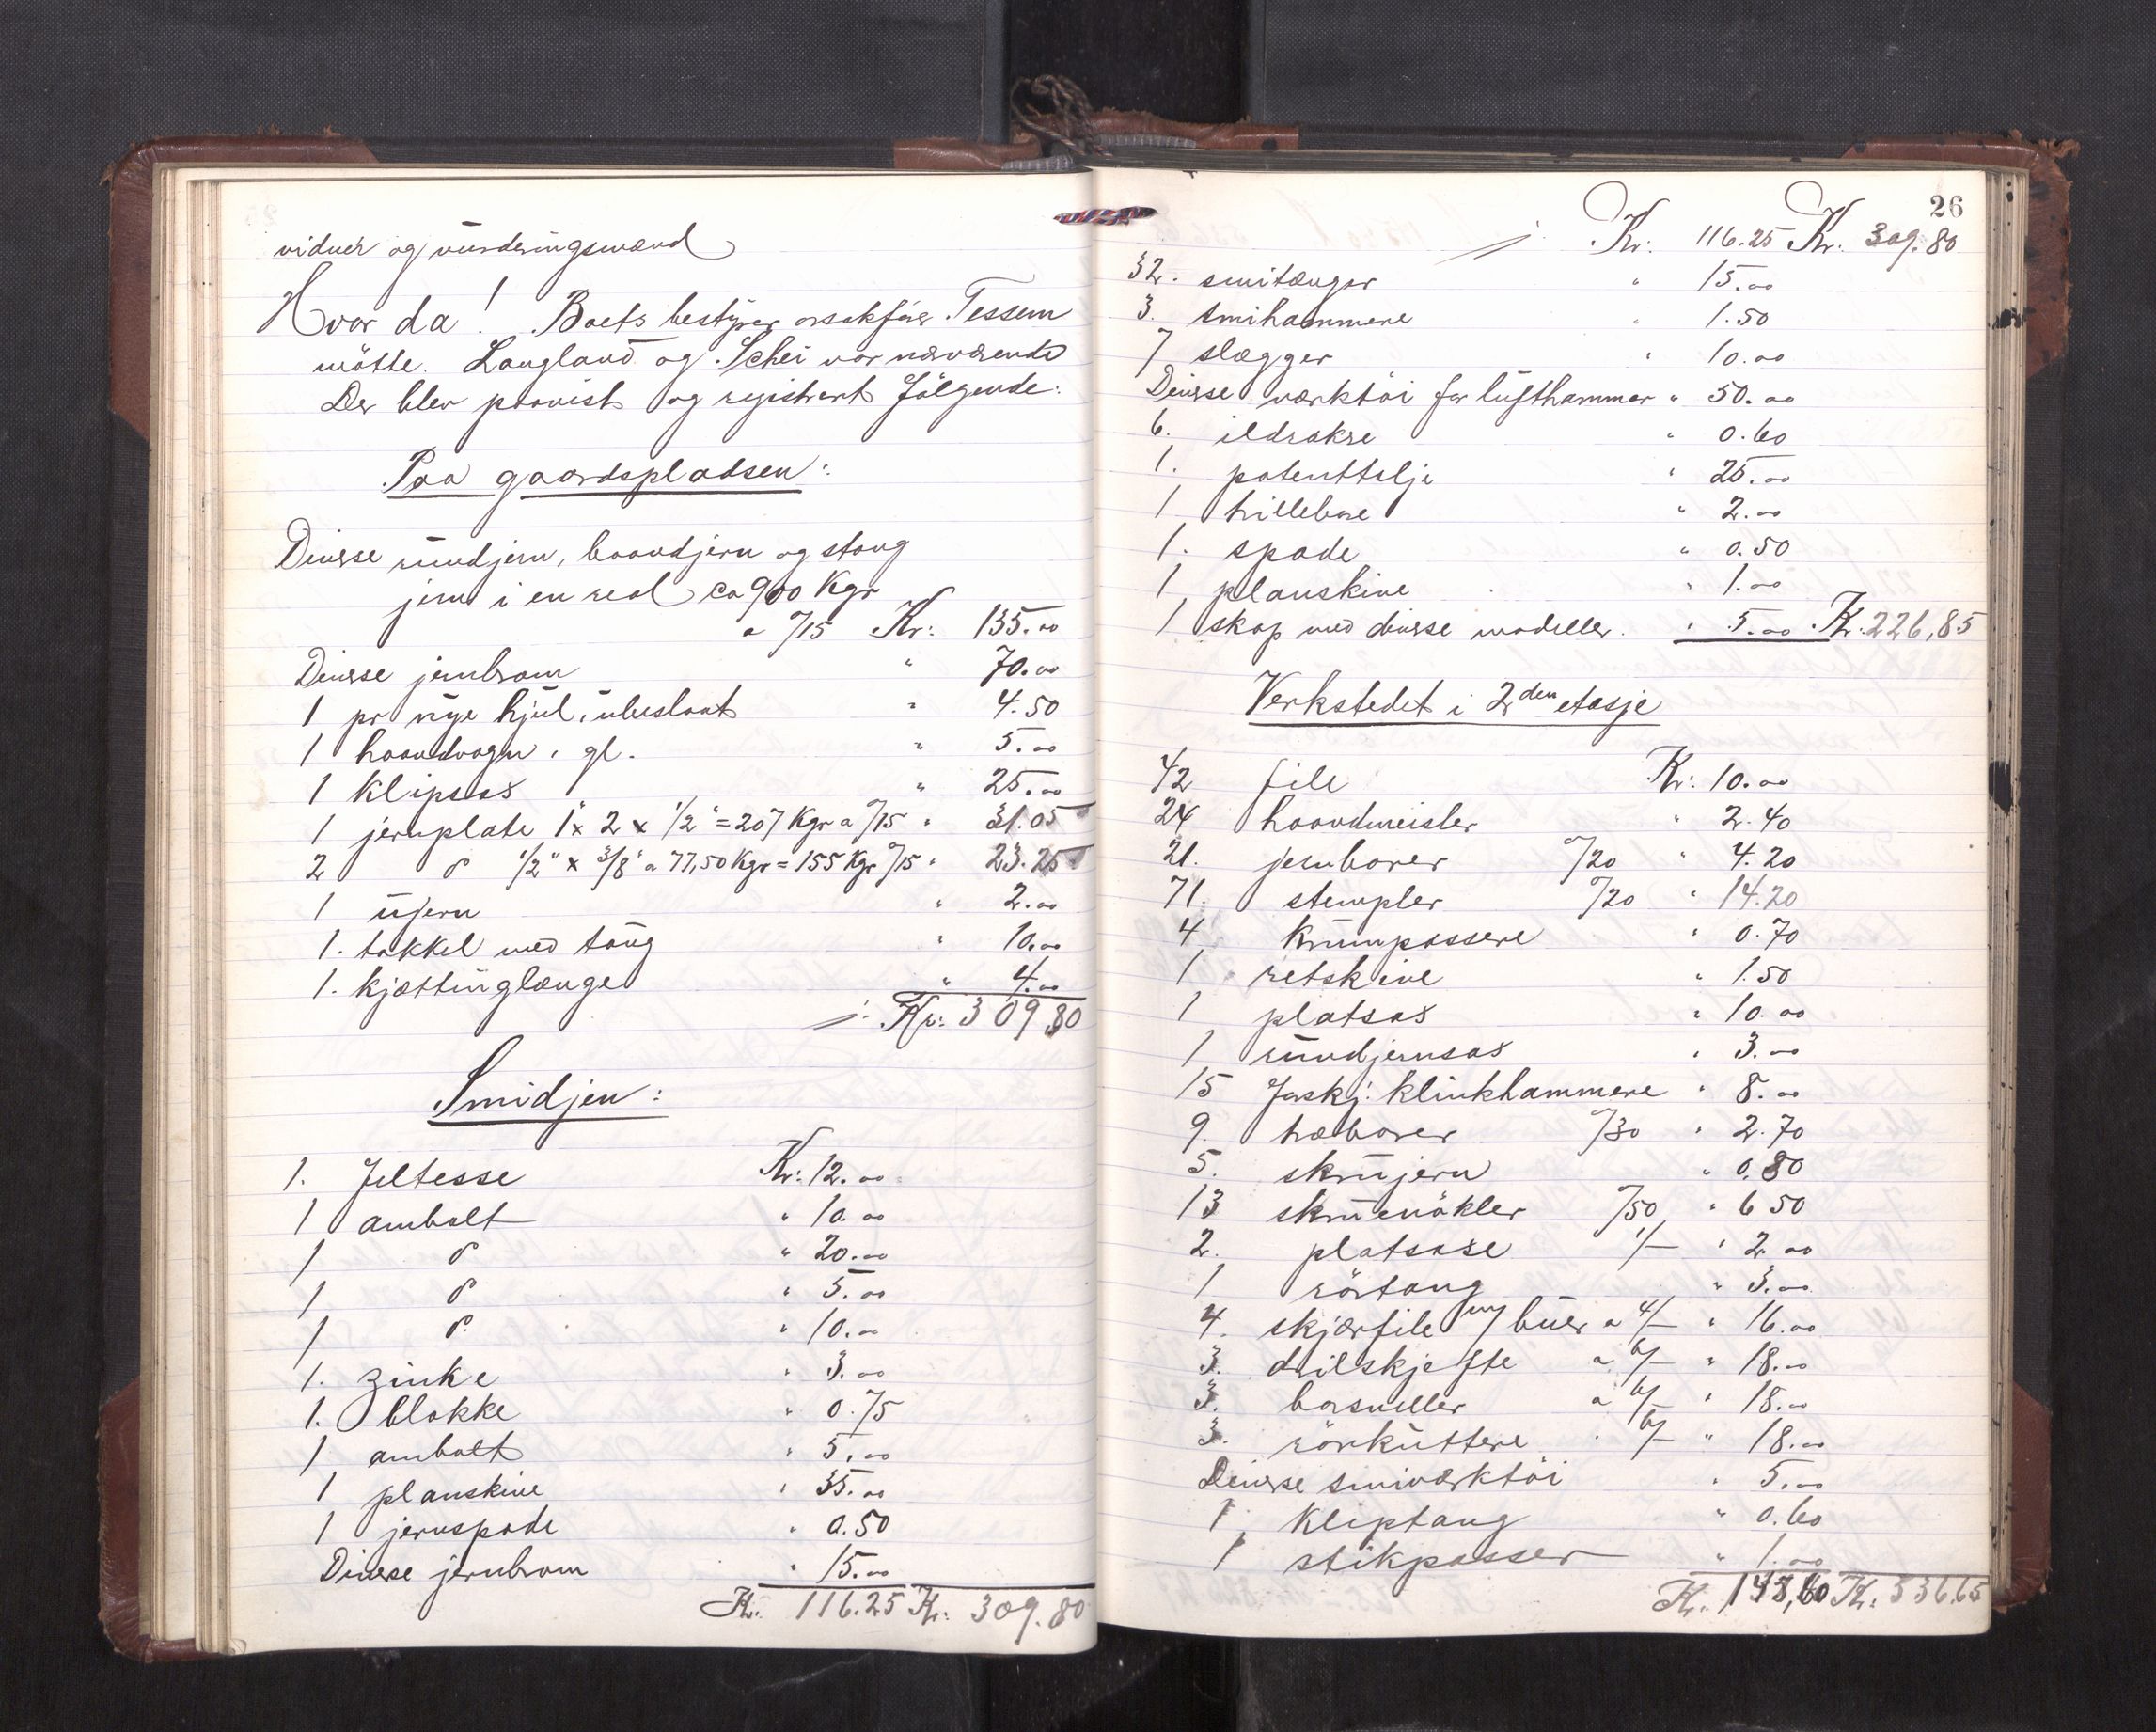 vidner og vurderingsmænd
Hvor da! Boets bestyrer orsakfører Tessem
møtte. Langland og Schei var nærværende
Der blev paavist og registrert følgende:
Paa gaardspladsen:
Diverse rundjern, baandjern og stang
jern i en reol ca 900 Kgr
a °/15 Kr: 135.00
Diverse jernbrom " 70.00
1 pr nye hjul, ubeslaat " 4.50
1 haandvogn, gl. " 5.00
1 klipsas " 25.00
1 jernplate 1" x 2 x 1/2" = 207 Kgr a °/15 " 31.05
2 d° 1/2" x 3/8" a 77,50 Kgr = 155 Kgr °/15 " 23.25
1 ujern " 2.00
1. takkel med taug " 10.00
1. kjættinglænge " 4.00
Kr: 309 80
Smidjen:
1. Feltesse Kr: 12.00
1 ambolt " 10.00
1 d° " 20.00
1 d° " 5.00
1 d° " 10.00
1. zinke " 3.00
1. blokke " 0.75
1 ambolt " 5.00
1 planskive " 35.00
1 jernspade " 0.50
Diverse jernbrom " 15.00
Kr. 116.25 Kr. 309.80
26
Kr: 116.25 Kr: 309.80
32. smitænger " 15.00
3. smihammere " 1.50
7 slægger " 10.00
Diverse værktøi for lufthammer " 50.00
6. ildrakre " 0.60
1. patenttalje " 25.00
1 trillebøre " 2.00
1. spade " 0.50
1 planskive " 1.00
1 skap med diverse modeller. " 5.00 Kr. 226,85
Verkstedet i 2den etasje
42 file Kr: 10.00
24 haandmeisler " 2.40
21. jernborer °/20 " 4.20
71. stempler °/20 " 14.20
4 krumpassere " 0.70
1 retskive " 1.50
1 platsas " 10.00
1 rundjernsas " 3.00
15 forskj: klinkhammere " 8.00
9. træborer °/30 " 2.70
5. skrujern " 0.80
13 skruenøkler °/50 " 6 50
2. platsase 1/- " 2.00
1 rørtang " 3.00
4. skjærfile m/ buer a 4/- " 16.00
3. drilskjefte a 6/- " 18.00
3. borsneller a 6/- " 18.00
3. rørkuttere " 6/- " 18.00
Diverse smiværktøi " 5.00
1. kliptang " 0.60
1 stikpasser " 1.00
Kr. 147,60 Kr. 536.65